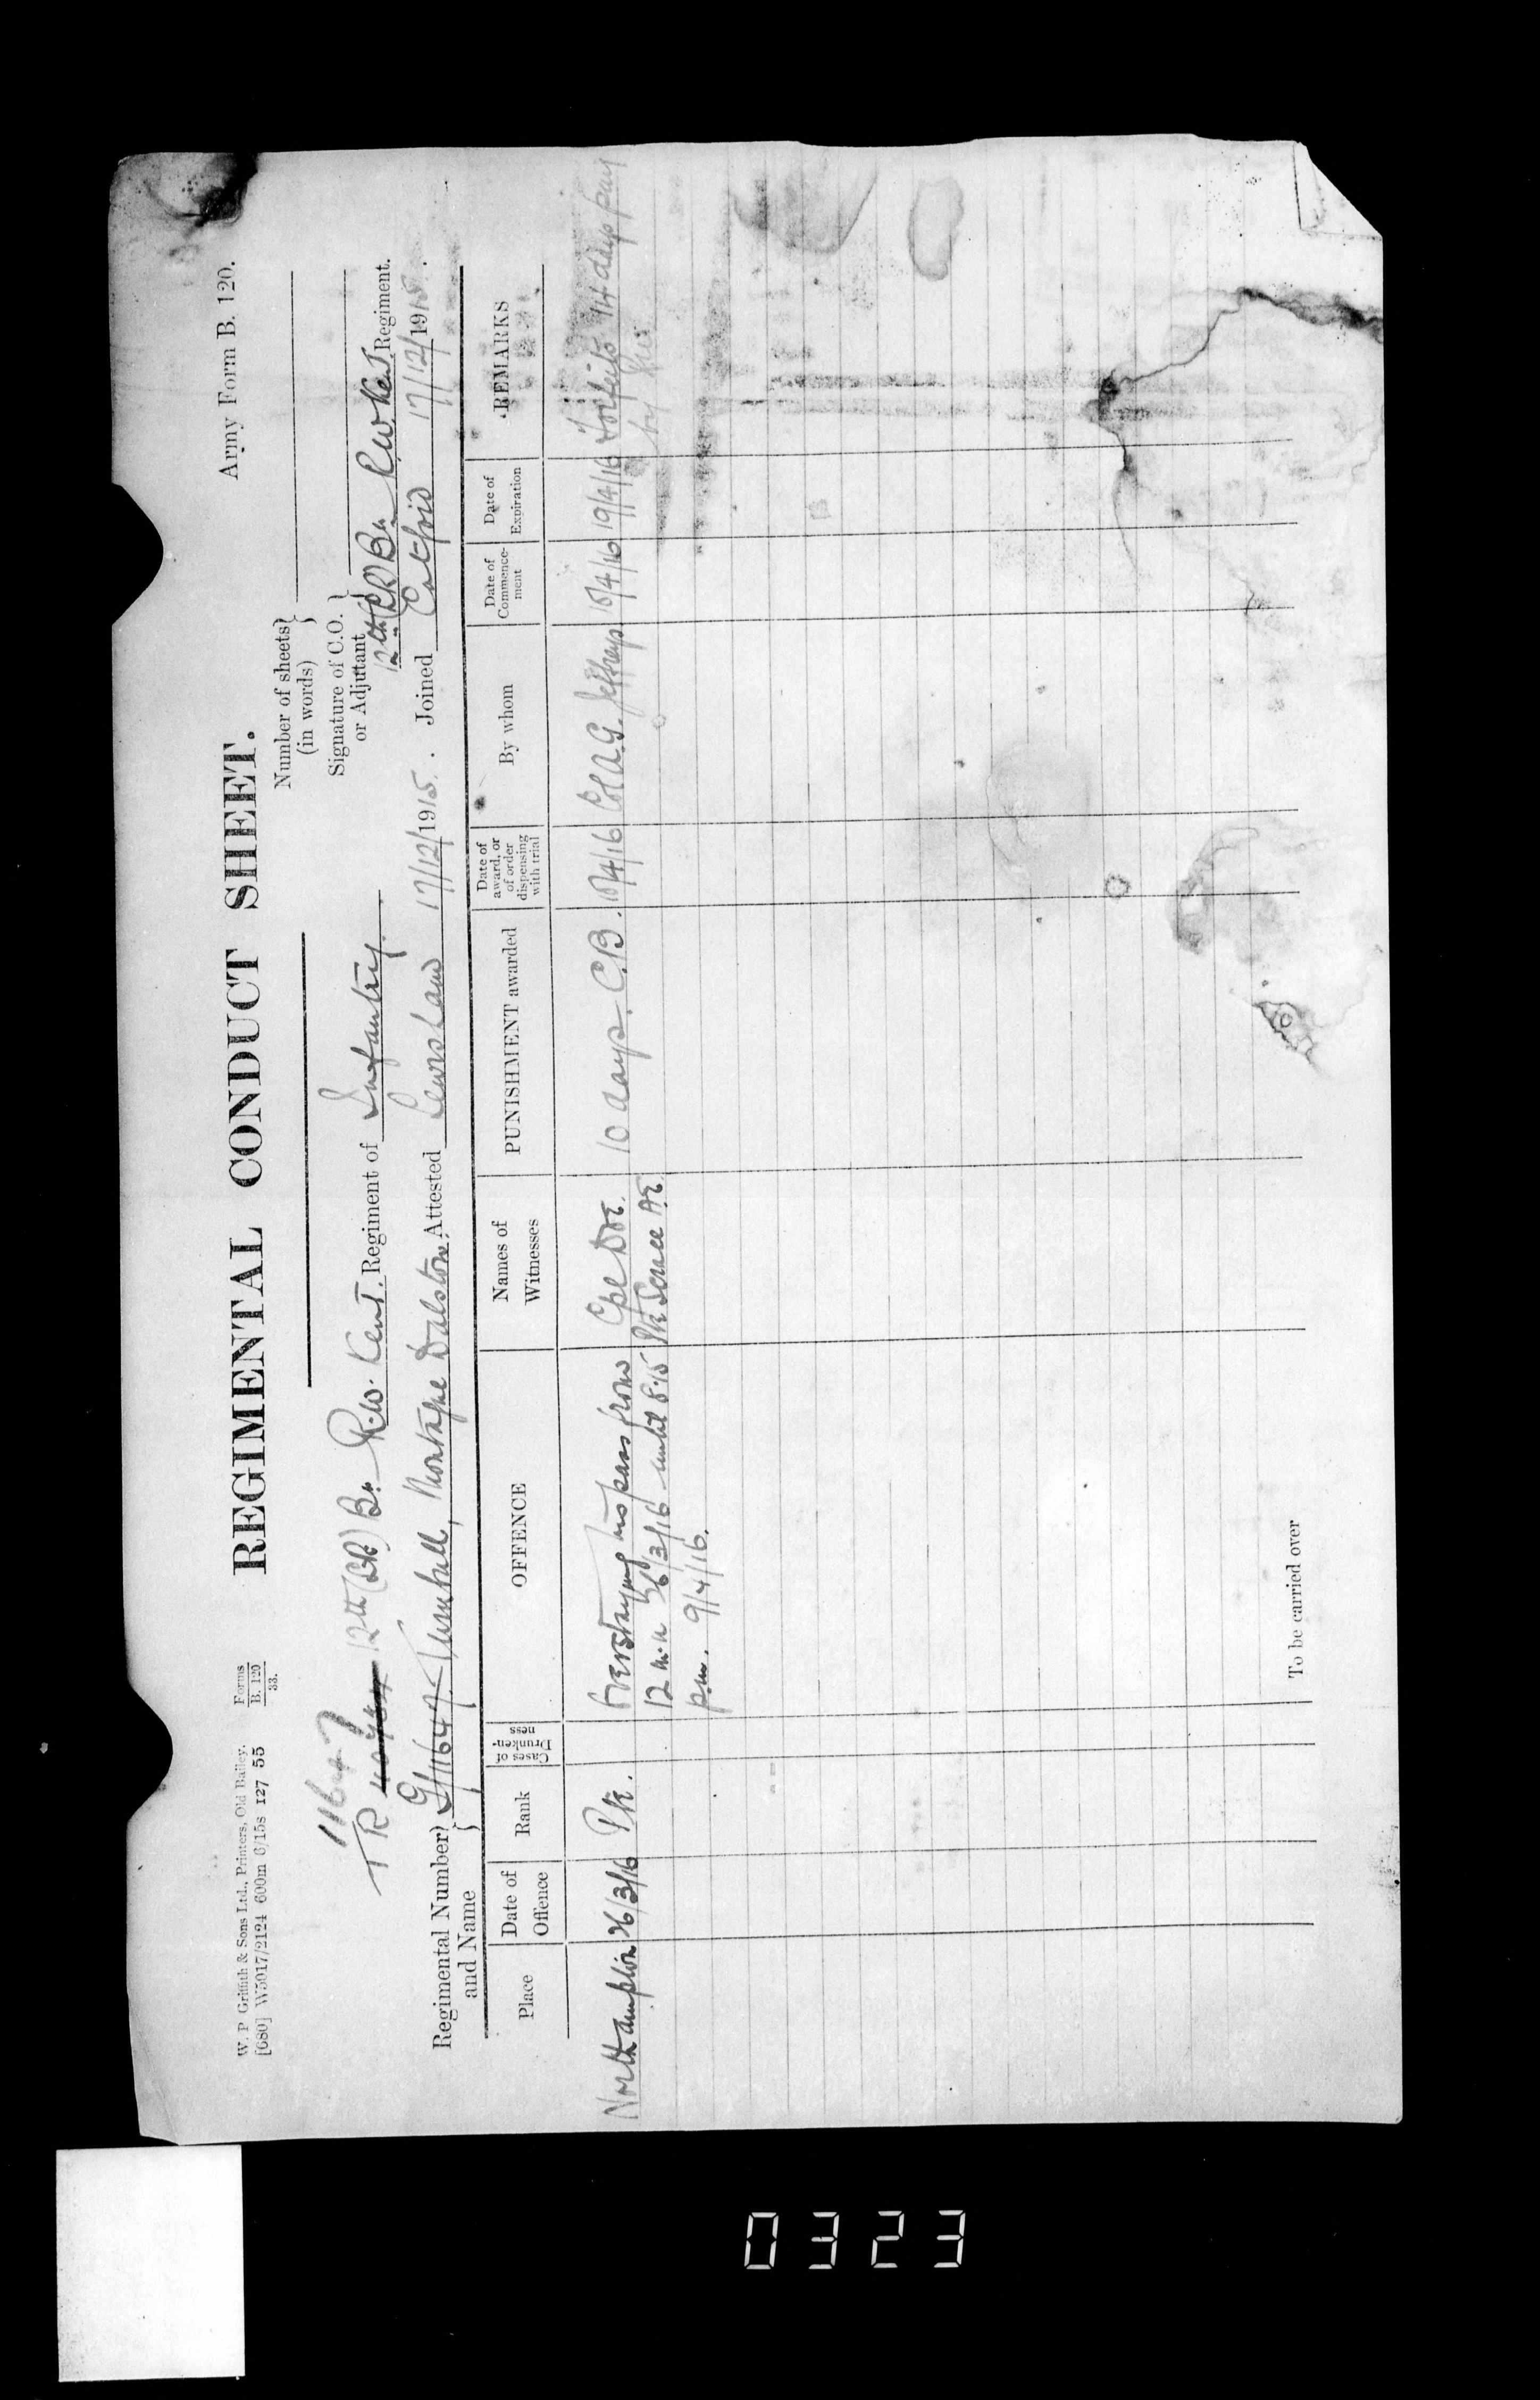 W. P. Griffith & Sons Ltd., Printers, Old Bailey.
[680] W5017/2124 600m 6/15s 127 55
Forms
B. 120
33.
Army Form B. 120.
REGIMENTAL CONDUCT SHEET.
Number of sheets
(in words)
Signature of C.O.
or Adjutant
11647
TR
12th (Bk) Bn R.W. Kent. Regiment of Infantry.
12th (Bk) Bn R W Kent Regiment.
Regimental Number
and Name
G/11647 Turnbull, Montague Dalston. Attested Lewisham 17/12/1915. Joined Catford 17/12/1915.
Place
Date of
Offence
Rank
Cases of
Drunken-
ness
OFFENCE
Names of
Witnesses
PUNISHMENT awarded
Date of
award, or
of order
dispensing
with trial
By whom
Date of
Commence-
ment
Date of
Expiration
REMARKS
Northampton 26/3/16 Pte. Overstaying his pass from Cpl Doe. 10 days. C.B. 10/4/16 Col A.G. Jeffreys 10/4/16 19/4/16 Forfeits 14 days pay
12 m.n 26/3/16 until 8.15 Pte A.E. by
p.m. 9/4/16.
To be carried over
0323